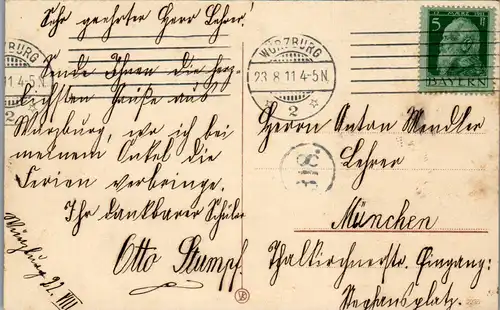 Sehr geehrter Herr Lehrer!
Sende Ihnen die herz-
lichsten Grüße aus
Würzburg, wo ich bei
meinem Onkel die
Ferien verbringe.
Ihr dankbarer Schüler
Otto Stumpf.
Würzburg 22. VIII
WÜRZBURG
23.8.11 4-5N.
2
WÜRZBURG
11 4-5N.
5
BAYERN
Herrn Anton Wendler
Lehrer
München
Thalkirchnerstr. Eingang:
Stephansplatz.